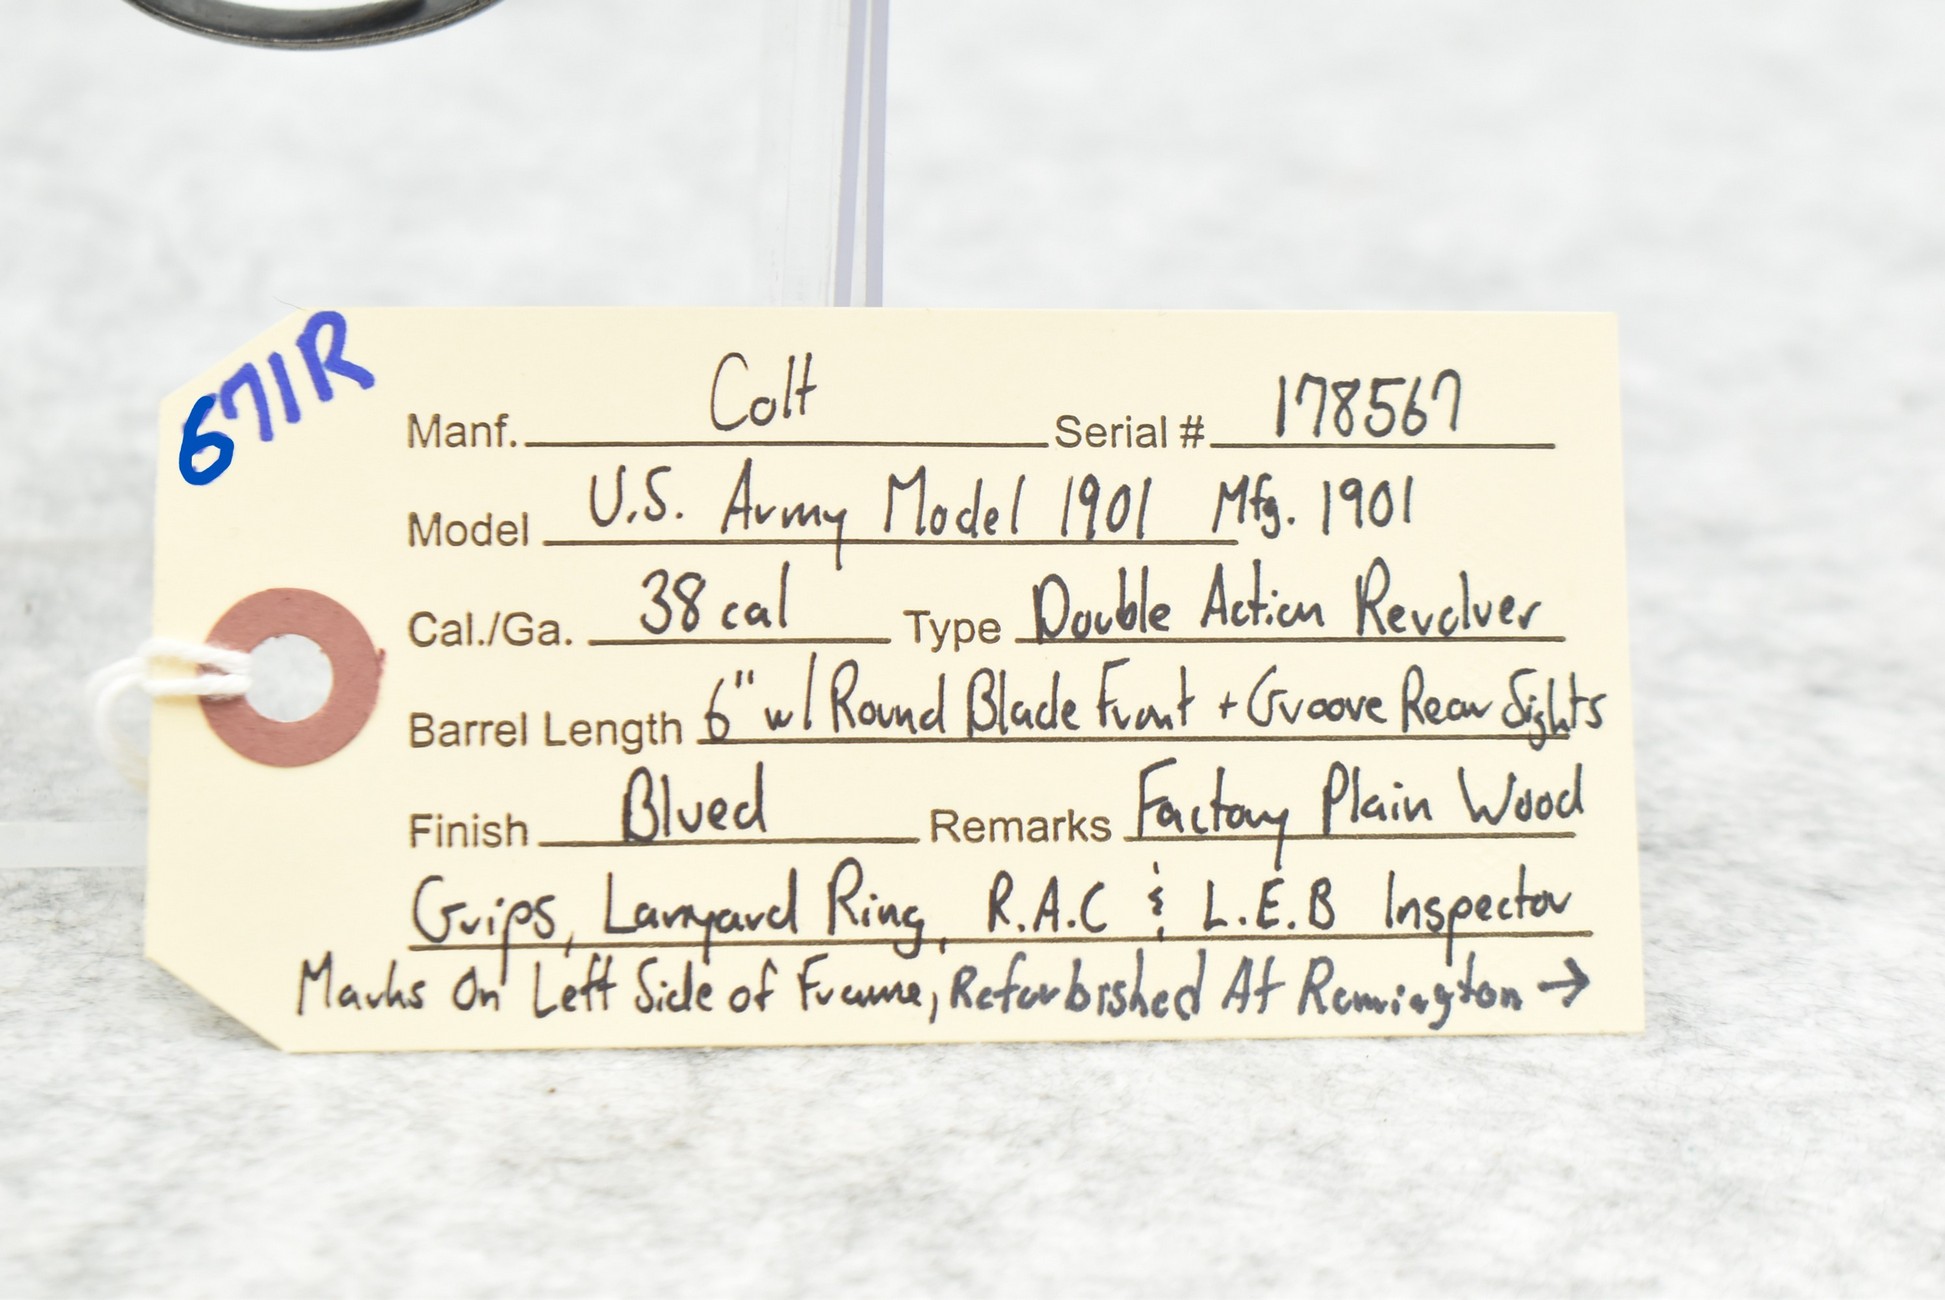 671R
Manf. Colt Serial # 178567
Model U.S. Army Model 1901 Mfg. 1901
Cal./Ga. 38 cal Type Double Action Revolver
Barrel Length 6" w/ Round Blade Front + Groove Rear Sights
Finish Blued Remarks Factory Plain Wood
Grips, Lanyard Ring, R.A.C & L.E.B Inspector
Marks On Left Side of Frame, Refurbished At Remington →